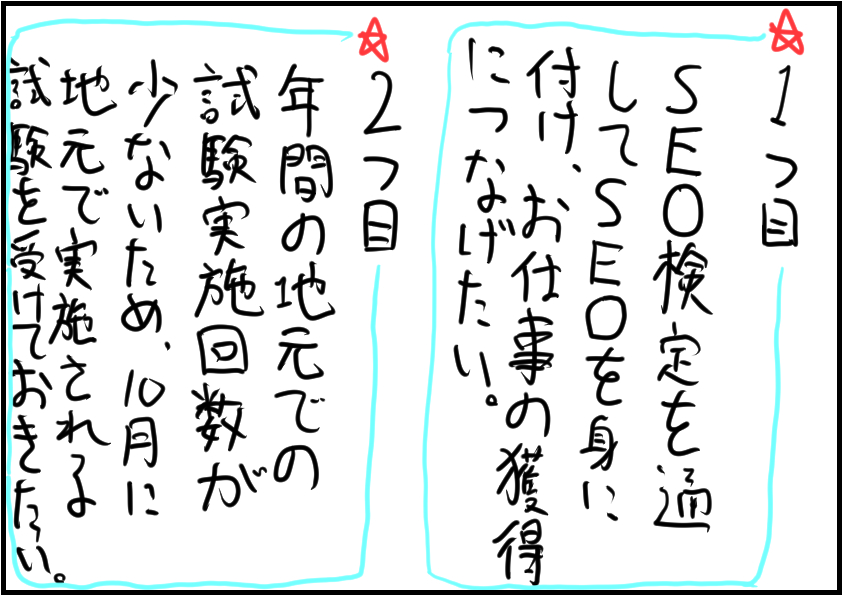 1つ目
SEO検定を通
してSEOを身に
付け、お仕事の獲得
につなげたい。
2つ目
年間の地元での
試験実施回数が
少ないため、10月に
地元で実施される
試験を受けておきたい。